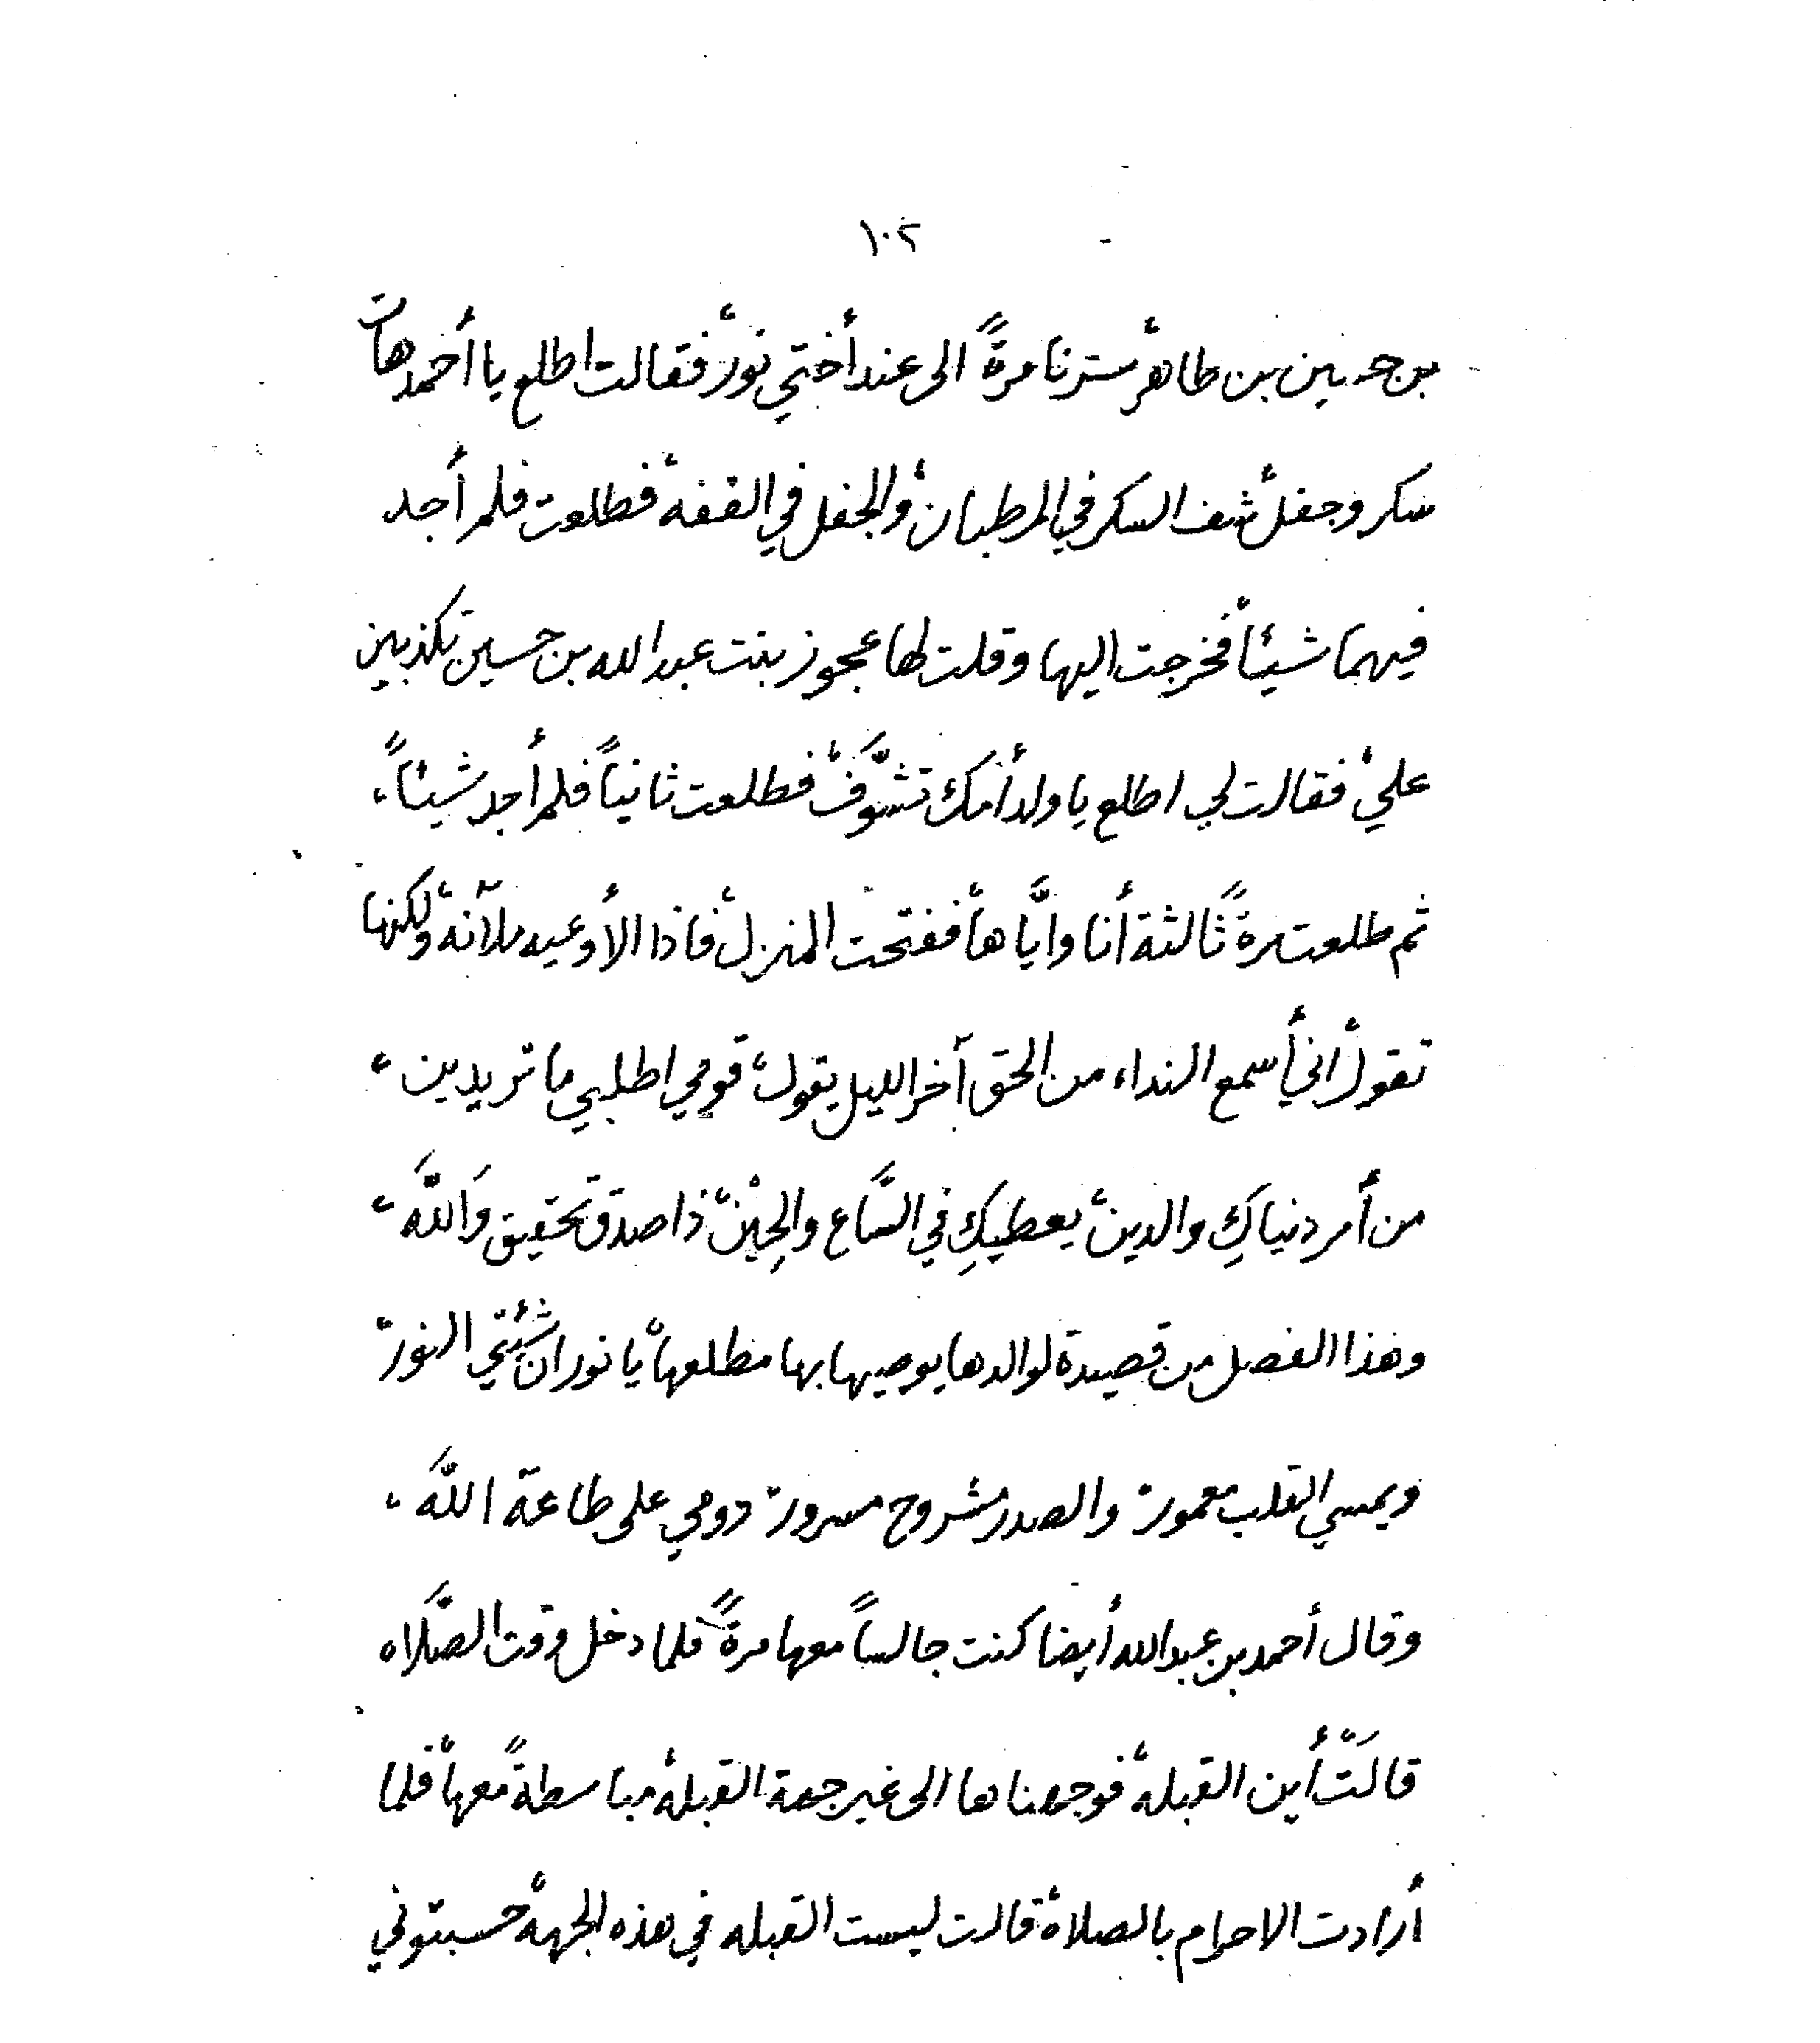 ١٠٢
بن حسين بن طاهر، سرنا مرةً الى عند أختي نور، فقالت اطلع يا أحمد هات
سكر وجفل، شف السكر في المرطبان، والجفل في القفه، فطلعت فلم أجد
فيهما شيئاً، فخرجت اليها وقلت لها عجوز بنت عبدالله بن حسين تكذبين
علي، فقالت لي اطلع يا ولد أمك تشوَّف، فطلعت ثانياً فلم أجد شيئاً،
ثم طلعت مرةً ثالثة أنا وايَّاها، ففتحت المنزل، فاذا الأوعيه ملآنه، ولكنها
تقول، اني أسمع النداء من الحق آخر الليل يقول، قومي اطلبي ما تريدين،
من أمر دنياكِ والدين، يعطيكِ في السَّاع والحِيْن، ذا صدق تحقيق وَاللَّه،
وهذا الفصل من قصيدة لوالدها يوصيها بها مطلعها، يا نور ان شئتي النور،
ويمسي القلب معمور، والصدر مشروح مسرور، دومي على طاعة اللَّه،
وقال أحمد بن عبدالله أيضا كنت جالساً معها مرةً، فلما دخل وقت الصَّلاه
قالَتْ، أين القبلة، فوجهناها الى غير جهة القبلة، مباسطةً معها، فلما
أرادت الاحرام بالصلاة، قالت ليست القبله في هذه الجهة، حسبتوني